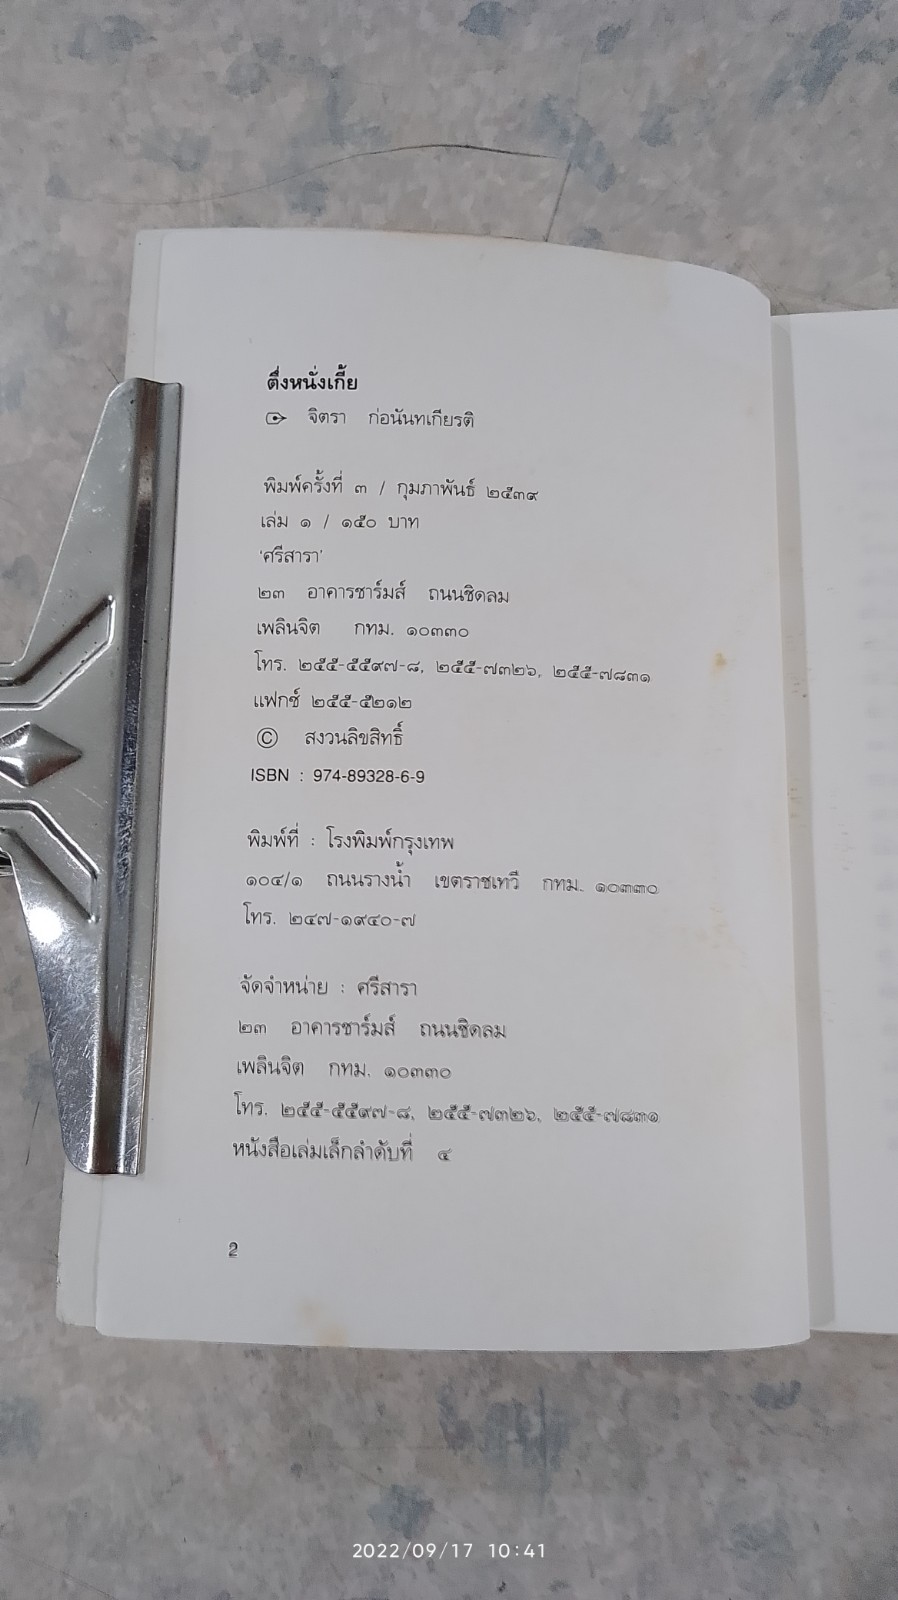 ตึ่งหนั่งเกี้ย
จิตรา ก่อนันทเกียรติ
พิมพ์ครั้งที่ ๓ / กุมภาพันธ์ ๒๕๓๙
เล่ม ๑ / ๑๕๐ บาท
'ศรีสารา'
๒๓ อาคารชาร์มส์ ถนนชิดลม
เพลินจิต กทม. ๑๐๓๓๐
โทร. ๒๕๕-๕๕๙๗-๘, ๒๕๕-๗๓๒๖, ๒๕๕-๗๘๓๑
แฟกซ์ ๒๕๕-๕๒๑๒
© สงวนลิขสิทธิ์
ISBN : 974-89328-6-9
พิมพ์ที่ : โรงพิมพ์กรุงเทพ
๑๐๔/๑ ถนนรางน้ำ เขตราชเทวี กทม. ๑๐๓๓๐
โทร. ๒๔๗-๑๙๔๐-๗
จัดจำหน่าย : ศรีสารา
๒๓ อาคารชาร์มส์ ถนนชิดลม
เพลินจิต กทม. ๑๐๓๓๐
โทร. ๒๕๕-๕๕๙๗-๘, ๒๕๕-๗๓๒๖, ๒๕๕-๗๘๓๑
หนังสือเล่มเล็กลำดับที่ ๔
2
2022/09/17 10:41